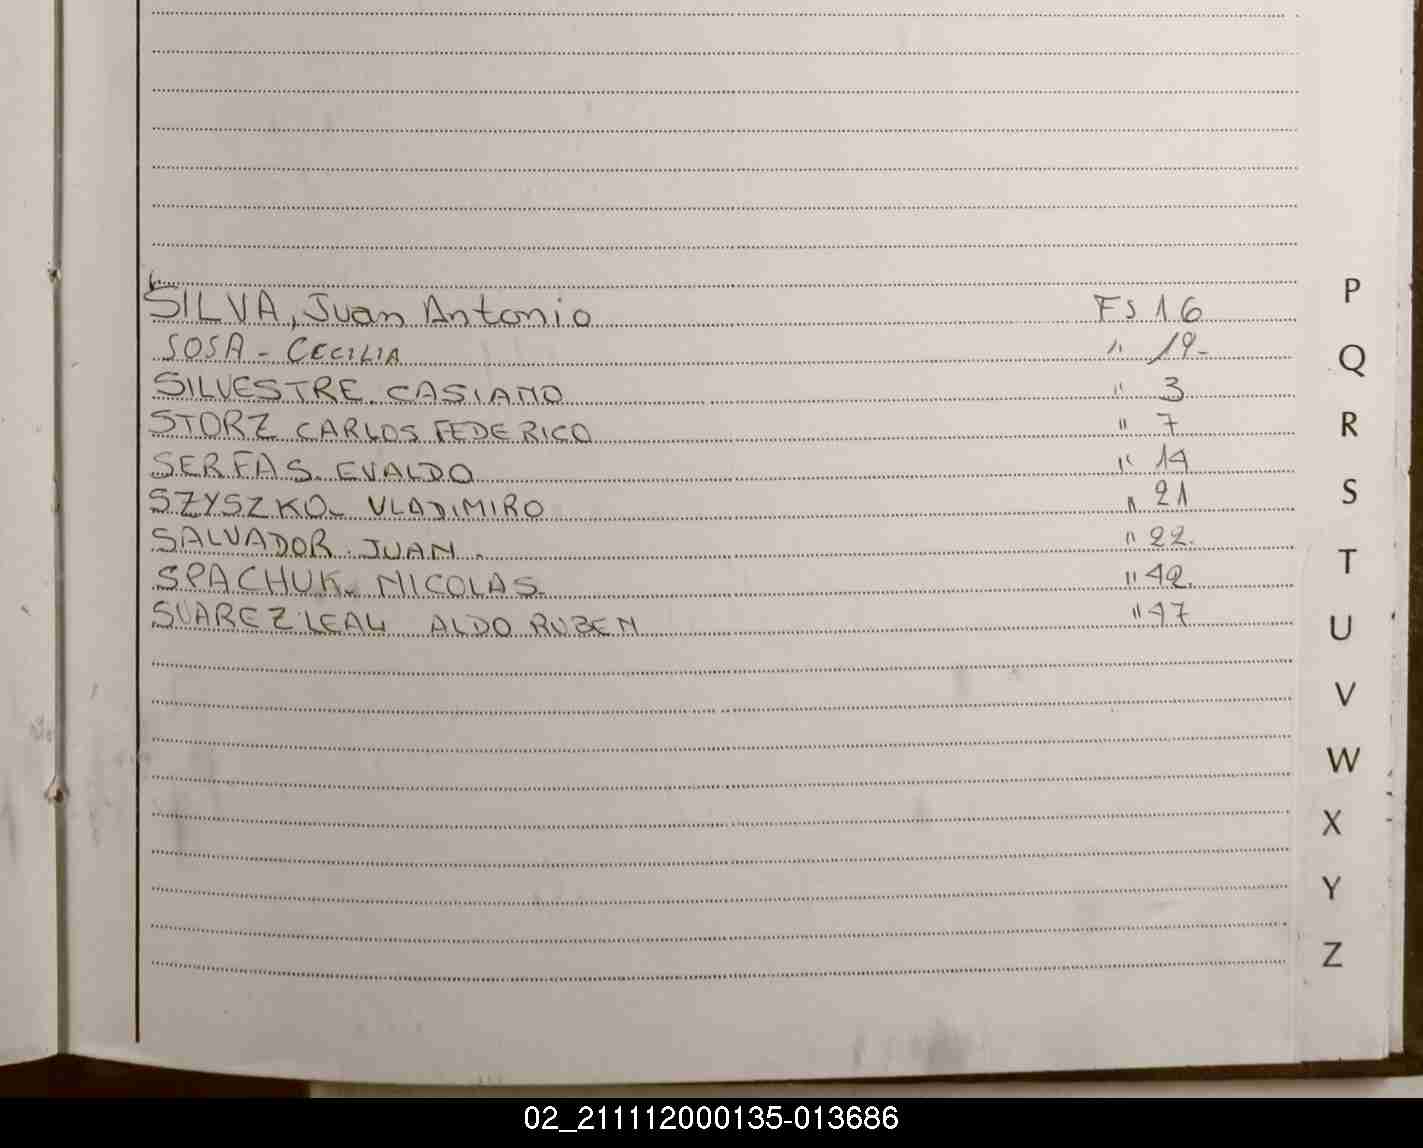 SILVA, Juan Antonio FS 16
SOSA - CECILIA " 19-
SILVESTRE. CASIANO " 3
STORZ CARLOS FEDERICO " 7
SERFAS. EVALDO " 14
SZYSZKO- VLADIMIRO " 21
SALVADOR. JUAN. " 22.
SPACHUK. NICOLAS. " 42.
SUAREZ LEAL ALDO RUBEN " 47
P
Q
R
S
T
U
V
W
X
Y
Z
02_211112000135-013686